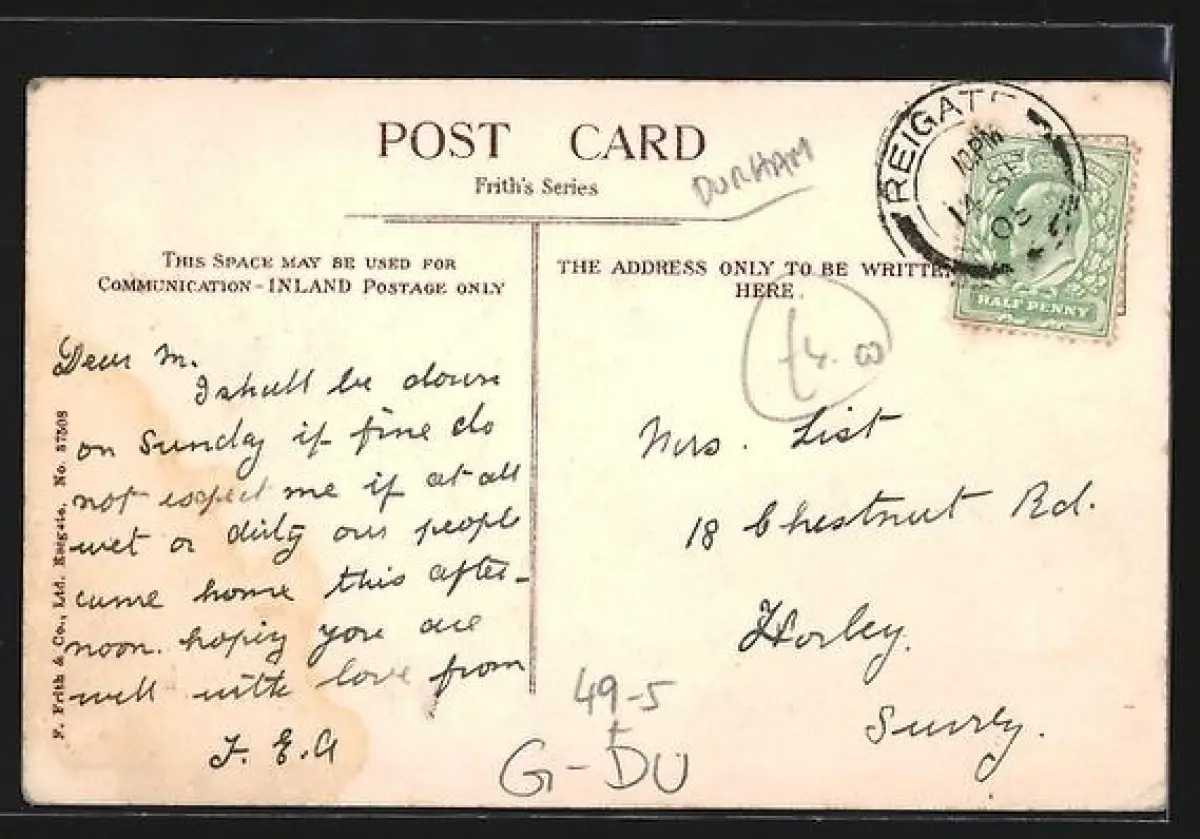 POST CARD
Frith's Series
DURHAM
REIGATE
10 PM
14 SP
05
HALF PENNY
THIS SPACE MAY BE USED FOR
COMMUNICATION - INLAND POSTAGE ONLY
THE ADDRESS ONLY TO BE WRITTEN
HERE.
£4.00
Dear M.
I shall be down
on Sunday if fine do
not expect me if at all
wet or dirty our people
came home this after-
noon. hoping you are
well with love from
F. E. A
F. Frith & Co., Ltd. Reigate. No. 57508
Mrs. List
18 Chestnut Rd.
Horley.
Surrey.
49-5
G-DU